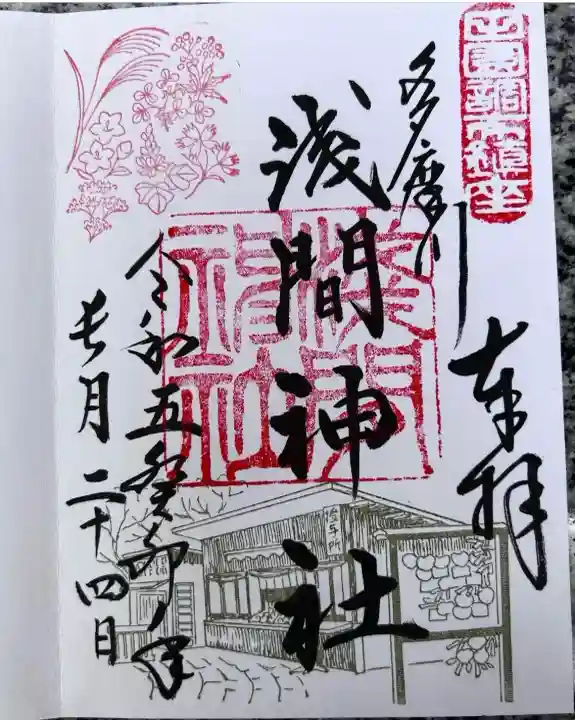 田園調布鎮座
奉拝
多摩川
浅間神社
淺間神社
令和五癸卯年
長月二十四日
授与所